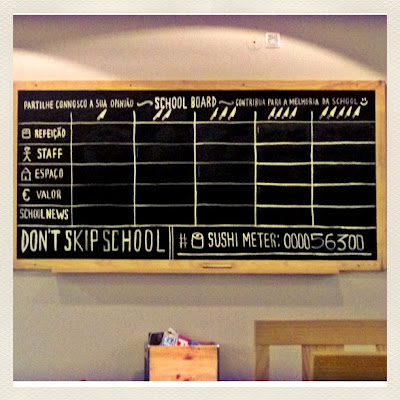 PARTILHE CONNOSCO A SUA OPINIÃO ~ SCHOOL BOARD ~ CONTRIBUA PARA A MELHORIA DA SCHOOL
REFEIÇÃO
STAFF
ESPAÇO
€ VALOR
SCHOOL NEWS
DON'T SKIP SCHOOL
# SUSHI METER: 000056300